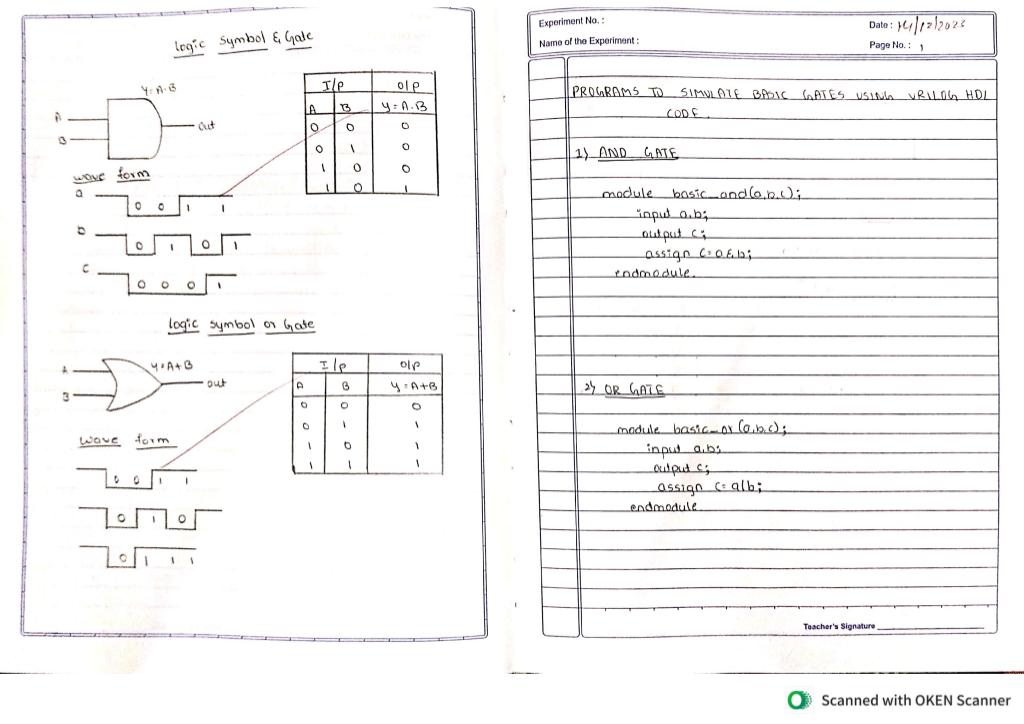 Logic Symbol & Gate
Y=A.B
A
B
out
I/p O/p
A B Y=A.B
0 0 0
0 1 0
1 0 0
1 0 1
wave form
a
0 0 1 1
b
0 1 0 1
c
0 0 0 1
Logic symbol or Gate
Y=A+B
A
B
out
I/p O/p
A B Y=A+B
0 0 0
0 1 1
1 0 1
1 1 1
wave form
0 0 1 1
0 1 0
0 1 1 1
Experiment No. :
Name of the Experiment :
Date :
Page No. : 1
PROGRAMS TO SIMULATE BASIC GATES USING VRILOG HDL
CODE.
1) AND GATE
module basic_and(a,b,c);
input a,b;
output c;
assign c=a&b;
endmodule.
2) OR GATE
module basic_or (a,b,c);
input a,b;
output c;
assign c=a|b;
endmodule.
Teacher's Signature
Scanned with OKEN Scanner